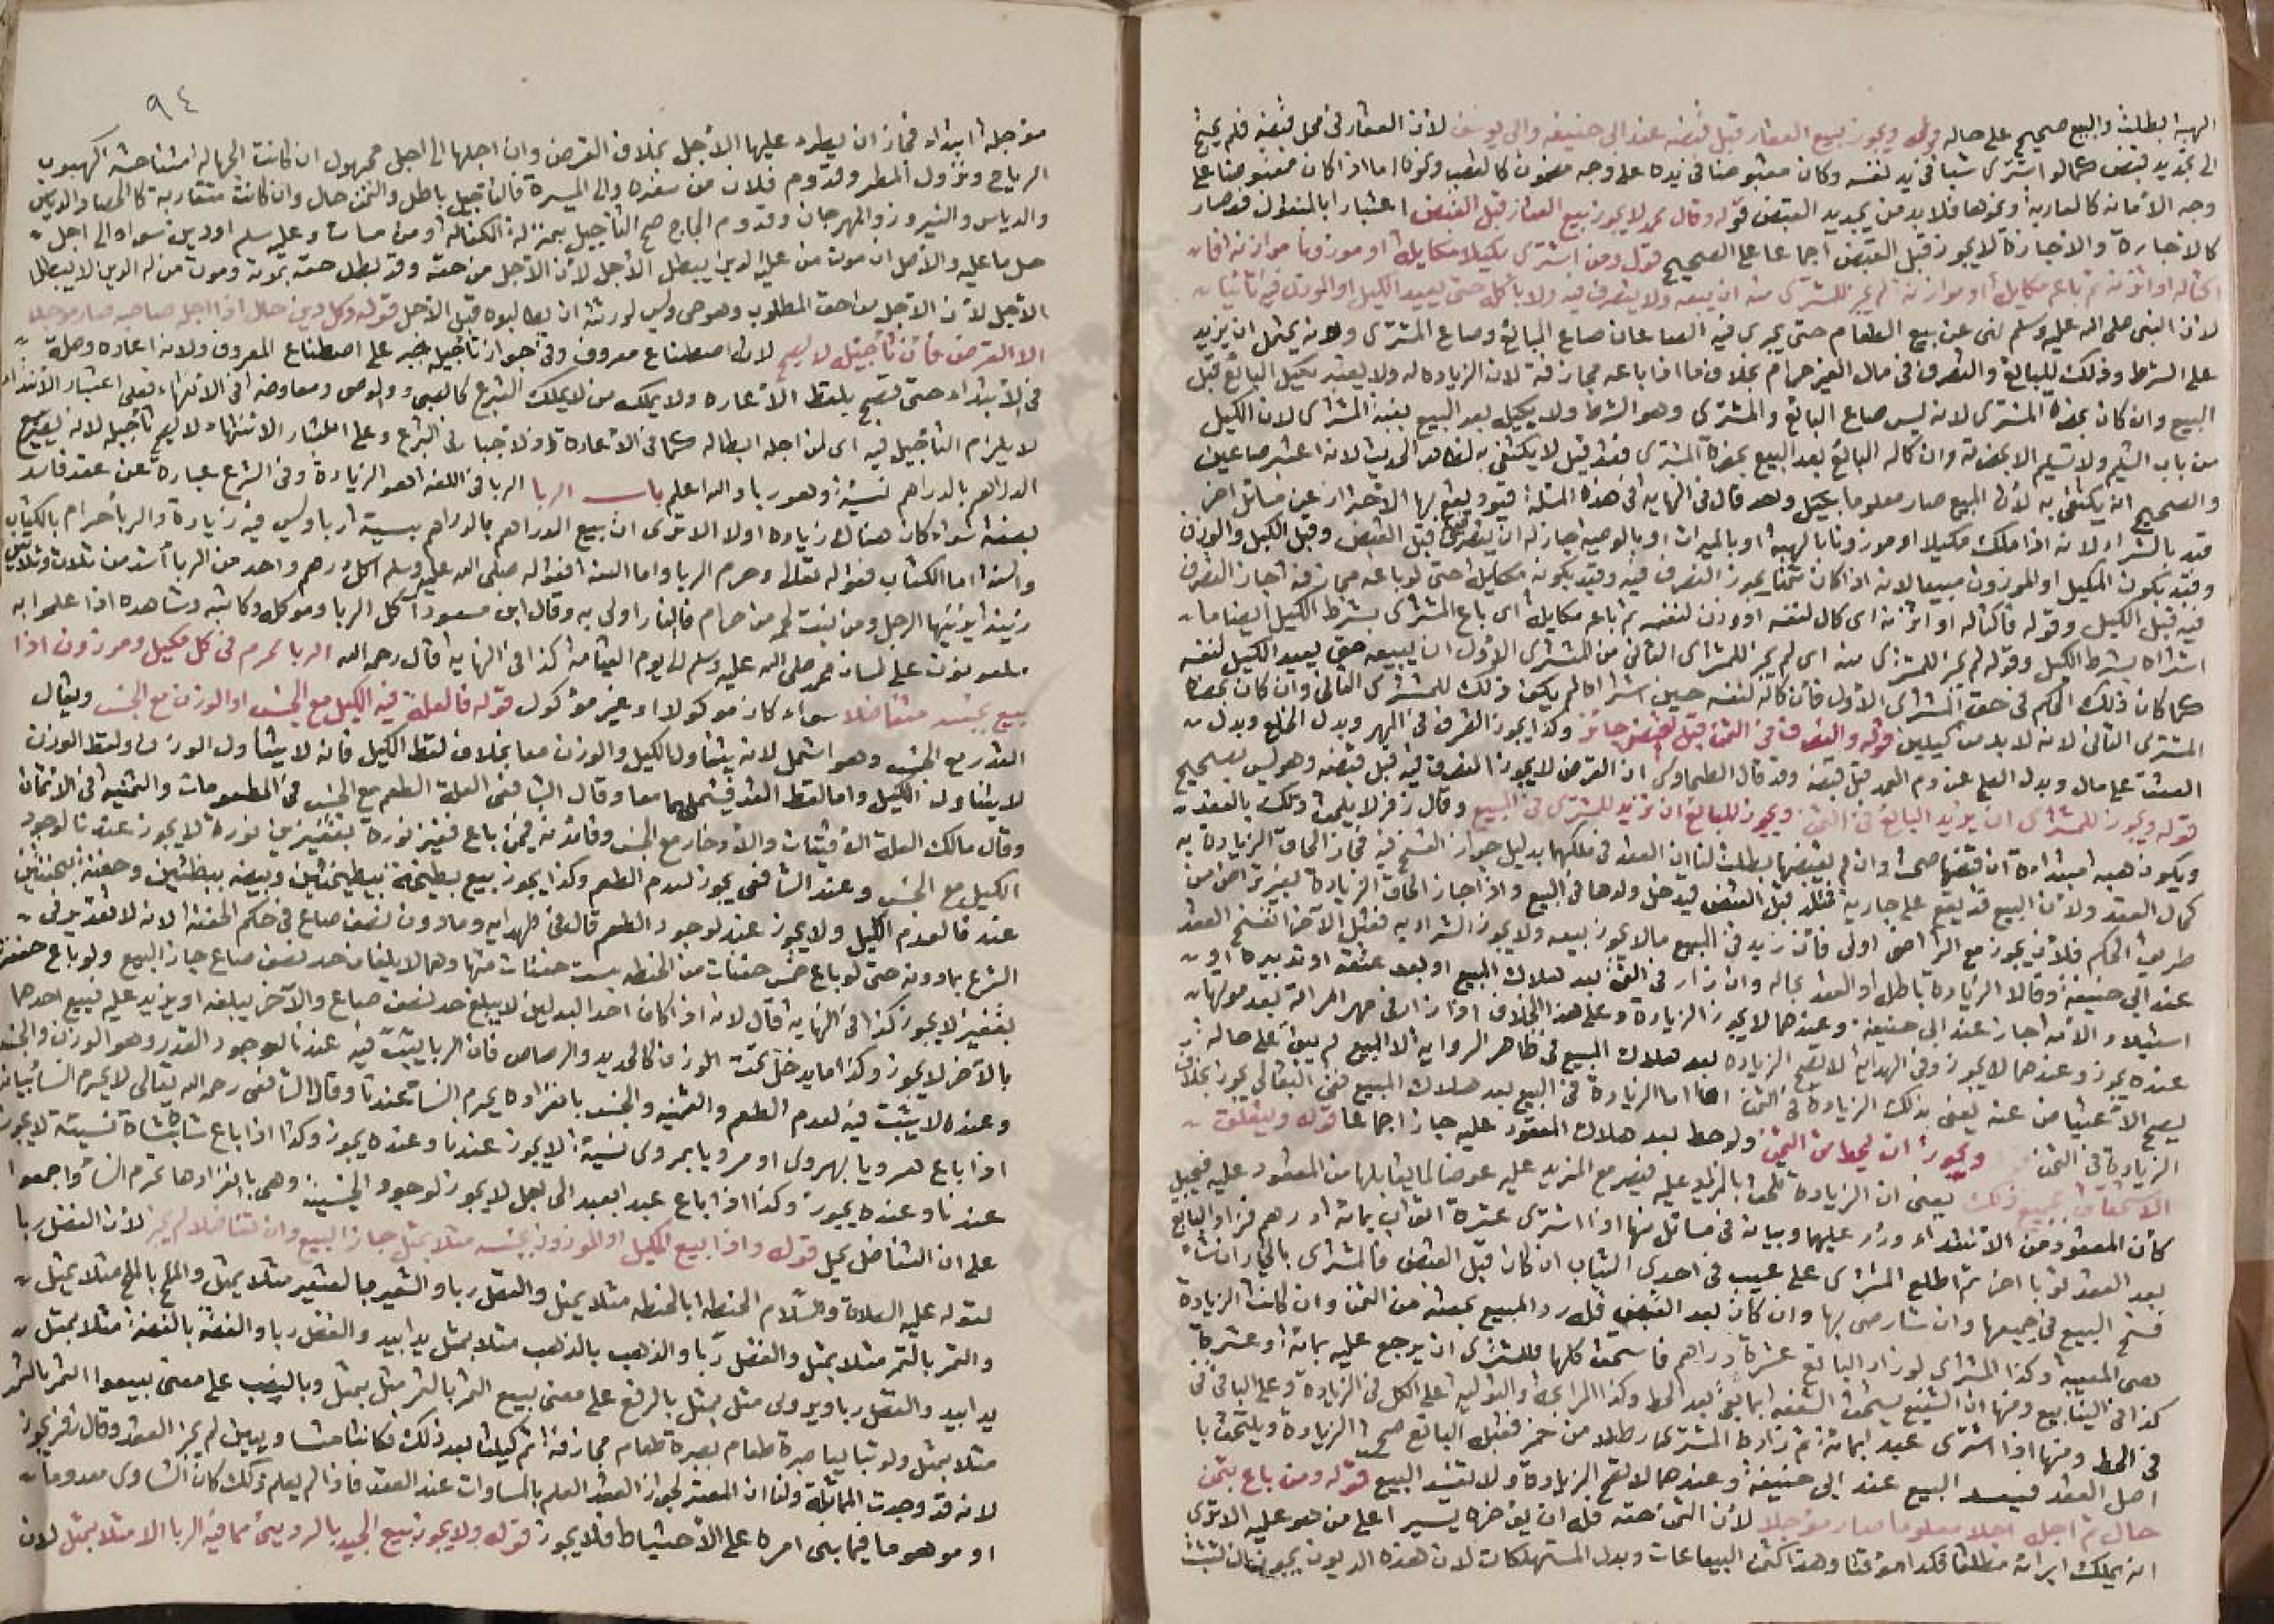 الهبة بطلت والبيع صحيح على حاله قوله ويجوز بيع العقار قبل قبضه عند ابى حنيفه وابى يوسف لان العقار فى محل قبضه فلم يحتج
الى تجديد قبض كما لو اشترى شيا فى يد نفسه وكان مقبوضا فى يده على وجه مضمون كالغصب ونحوه اما اذا كان مقبوضا على
وجه الامانه كالعارية ونحوها فلابد من تجديد القبض قوله وقال محمد لا يجوز بيع العقار قبل القبض اعتبارا بالمنقول فصار
كالاجارة والاجارة لا يجوز قبل القبض اجماعا على الصحيح قوله ومن اشترى مكيلا مكايلة او موزونا موازنة فا
كتاله او اتزنه ثم باعه مكايلة او موازنة لم يجز للمشترى منه ان يبيعه ولا يتصرف فيه ولا ياكله حتى يعيد الكيل او الوزن فيه ثانيا
لان النبى صلى الله عليه وسلم نهى عن بيع الطعام حتى يجرى فيه الصاعان صاع البائع وصاع المشترى ولانه يحتمل ان يزيد
على الشرط وذلك للبائع والتصرف فى مال الغير حرام بخلاف ما اذا باعه مجازفة لان الزيادة له ولا يعتبر بكيل البائع قبل
البيع وان كان بحضرة المشترى لانه ليس صاع البائع والمشترى وهو الشرط ولا بكيله بعد البيع بغيبة المشترى لان الكيل
من باب التسليم ولا تسليم الا بحضرته وان كاله البائع بعد البيع بحضرة المشترى فقد قيل لا يكتفى به لظاهر الحديث لانه اعتبر صاعين
والصحيح انه يكتفى به لان المبيع صار معلوما بكيل واحد قال فى النهايه فى هذه المسئلة قيود يقع بها الاحتراز عن مسائل اخر
قيد بالشراء لانه اذا ملك مكيلا او موزونا بالهبة او بالميراث او بالوصيه جاز له ان يتصرف فيه قبل القبض وقبل الكيل والوزن
وقيد بكون المكيل او الموزون مبيعا لانه اذا كان ثمنا يجوز التصرف فيه وقيد بكونه مكايلة حتى لو باعه مجازفة اجاز التصرف
فيه قبل الكيل وقوله فاكتاله او اتزنه اى كال لنفسه او وزن لنفسه ثم باعه مكايلة اى باع المشترى بشرط الكيل ايضا ما
اشتراه بشرط الكيل وقوله لم يجز للمشترى منه اى لم يجز للمشترى الثانى من المشترى الاول ان يبيعه حتى يعيد الكيل لنفسه
كما كان ذلك الحكم فى حق المشترى الاول فان كاله لنفسه حين اشتراه لم يكف ذلك للمشترى الثانى وان كان بحضرة
المشترى الثانى لانه لا بد من كيلين قوله والتصرف فى الثمن قبل قبضه جائز وكذا يجوز التصرف فى المهر وبدل الخلع وبدل
العتق على مال وبدل الصلح عن دم العمد قبل قبضه وقد قال الطحاوى ان القرض لا يجوز التصرف فيه قبل قبضه وهو ليس بصحيح
قوله ويجوز للمشترى ان يزيد البائع فى الثمن ويجوز للبائع ان يزيد للمشترى فى المبيع وقال زفر لا يلحق ذلك بالعقد
ويكون هبه مبتداة ان قبضها صحت وان لم يقبضها بطلت لنا ان العقد فى ملكهما بدليل جواز الفسخ فيه فجاز الحاق الزيادة به
كحال العقد ولان البيع قد يقع على جارية فتلد قبل القبض فيدخل ولدها فى البيع واذا جاز الحاق الزيادة بغير تراض من
طريق الحكم فلان يجوز مع التراضى اولى فان زيد فى البيع مالا يجوز بيعه ولا يجوز الشراء به فقبل الآخر انفسخ العقد
عند ابى حنيفة وقالا الزيادة باطلة والعقد بحاله وان زاد فى الثمن بعد هلاك المبيع او بعد عتقه او تدبيره او
استيلاده الامه اجاز عند ابى حنيفة وعندهما لا يجوز الزيادة وعلى هذا الخلاف اذا زاد فى مهر امراته بعد موتها
عنده يجوز وعندهما لا يجوز وفى الهدايه لا تصح الزيادة بعد هلاك المبيع فى ظاهر الروايه لان المبيع لم يبق على حاله
يصح الاعتياض عنه يعنى بذلك الزيادة فى الثمن اما الزيادة فى المبيع بعد هلاك المبيع ففى البقالى يجوز بخلاف
الزيادة فى الثمن ويجوز ان يحط من الثمن ولو حط بعد هلاك المعقود عليه جاز اجماعا قوله ويتعلق
الاستحقاق بجميع ذلك يعنى ان الزيادة تلحق بالمزيد عليه فيصير مع المزيد عليه عوضا لما يقابلها من المعقود عليه فيجعل
كأن المعقود من الابتداء ورد عليهما وبيانه فى مسائل منها اذا اشترى عشرة اثواب بمائة درهم فزاد البائع
بعد العقد ثوبا اخر ثم اطلع المشترى على عيب فى احدى الثياب ان كان قبل القبض فالمشترى بالخيار ان شاء
فسخ البيع فى جميعها وان شا رضى بها وان كان بعد القبض فله رد المبيع بحصته من الثمن وان كانت الزيادة
هى المعيبة وكذا المشترى لو زاد البائع عشرة دراهم فاستحق كلها فللمشترى ان يرجع عليه بمائة وعشرة
كذا فى الينابيع ومنها ان الشفيع يستحق الشفعه بما بقى بعد الحط وكذا المرابحة والتولية على الكل فى الزيادة وعلى الباقى فى
فى الحط ومنها اذا اشترى عبد ابمائة ثم زاده المشترى رطلا من خمر فقبل البائع صحت الزيادة ويلتحق با
اصل العقد فيفسد البيع عند ابى حنيفة وعندهما لا تصح الزيادة ولا يفسد البيع قوله ومن باع بثمن
حال ثم اجله اجلا معلوما صار مؤجلا لان الثمن حقه فله ان يؤخره تيسيرا على من هو عليه الا ترى
انه يملك ابراءه مطلقا فكذا مؤقتا وهذا كثمن البياعات وبدل المستهلكات لان هذه الديون يجوز ان تثبت
٩٤
مؤجلة ابتداء فجاز ان يطرء عليها الاجل بخلاف القرض وان اجلها الى اجل مجهول ان كانت الجهاله متفاحشة كهبوب
الرياح ونزول المطر وقدوم فلان من سفره والى الميسرة فالتاجيل باطل والثمن حال وان كانت متقاربة كالحصاد والدياس
والدياس والنيروز والمهرجان وقدوم الحاج صح التاجيل بمنزلة الكفاله ومن مات وعليه سلم او دين سواه الى اجل
حل ما عليه والاصل ان موت من عليه الدين يبطل الاجل لان الاجل من حقه وقد بطل حقه بموته وموت من له الدين لا يبطل
الاجل لان الاجل من حق المطلوب وهو حى وليس لورثته ان يطالبوه قبل الاجل قوله وكل دين حال اذا اجله صاحبه صار مؤجلا
الا القرض فان تأجيله لا يصح لانه اصطناع معروف وفى جواز تاجيله جبر على اصطناع المعروف ولانه اعارة وصلة
فى الابتداء حتى تصح بلفظ الاعارة ولا يملكه من لا يملك التبرع كالصبى والوصى ومعاوضه فى الانتهاء فعلى اعتبار الابتداء
لا يلزم التأجيل فيه اى لمن اجله ابطاله كما فى الاعارة اذ لا جبار فى التبرع وعلى اعتبار الانتهاء لا يصح تأجيله لانه يصير بيع
الدراهم بالدراهم نسيئة وهو ربا والله اعلم باب الربا الربا فى اللغه هو الزيادة وفى الشرع عبارة عن عقد فاسد
بصفة سواء كان هناك زيادة اولا الا ترى ان بيع الدراهم بالدراهم نسيئة ربا وليس فيه زيادة والربا حرام بالكتاب
والسنة اما الكتاب فقوله تعالى وحرم الربا واما السنة فقوله صلى الله عليه وسلم اكل درهم واحد من الربا اشد من ثلاث وثلاثين
زنية يزنيها الرجل ومن نبت لحمه من حرام فالنار اولى به وقال ابن مسعود آكل الربا وموكله وكاتبه وشاهده اذا علموا به
ملعونون على لسان محمد صلى الله عليه وسلم الى يوم القيامة كذا فى النهاية قال رحمه الله الربا محرم فى كل مكيل وموزون اذا
بيع بجنسه متفاضلا سواء كان موكولا او غير مؤكول قوله فالعلة فيه الكيل مع الجنس او الوزن مع الجنس ويقال
القدر مع الجنس وهو اشمل لانه يتناول الكيل والوزن معا بخلاف لفظ الكيل فانه لا يتناول الوزن ولفظ الوزن
لا يتناول الكيل واما لفظ القدر فيشملهما معا وقال الشافعى العلة الطعم مع الجنس فى المطعومات والثمنية فى الاثمان
وقال مالك العلة الاقتيات والادخار مع الجنس وفائدته فيمن باع قفيز نورة بقفيزين نورة لا يجوز عندنا لوجود
الكيل مع الجنس وعند الشافعى يجوز لعدم الطعم وكذا يجوز بيع بطيخة ببطيختين وبيضه ببيضتين وحفنة بحفنتين
عندنا لعدم الكيل ولا يجوز عنده لوجود الطعم قال فى الهدايه ومادون نصف صاع فى حكم الحفنة لانه لا تقدير فى
الشرع بمادونه حتى لو باع خمس حفنات من الحنطه بست حفنات منها وهما لا يبلغان حد نصف صاع جاز البيع ولو باع حفنة
بقفيز لا يجوز كذا فى النهايه قال لانه اذا كان احد البدلين لا يبلغ حد نصف صاع والآخر يبلغه او يزيد عليه فبيع احدهما
بالآخر لا يجوز وكذا ما يدخل تحت الوزن كالحديد والرصاص فان الربا يثبت فيه عندنا لوجود القدر وهو الوزن والجنس
وعنده لا يثبت فيه لعدم الطعم والثمنيه والجنس بانفراده يحرم النسا عندنا وقال الشافعى رحمه الله تعالى لا يحرم النسا بيانه
اذا باع هرويا بهروى او مرويا بمروى نسيئة لا يجوز عندنا وعنده يجوز وكذا اذا باع شاة بشاة نسيئة لا يجوز
عندنا وعنده يجوز وكذا اذا باع عبدا بعبد الى اجل لا يجوز لوجود الجنسية وهى بانفرادها تحرم النسا واجمعوا
على ان التفاضل يحل قوله واذا بيع المكيل او الموزون بجنسه مثلا بمثل جاز البيع وان تفاضلا لم يجز لان الفضل ربا
لقوله عليه الصلاة والسلام الحنطة بالحنطه مثلا بمثل والفضل ربا والشعير بالشعير مثلا بمثل والملح بالملح مثلا بمثل
والتمر بالتمر مثلا بمثل والفضل ربا والذهب بالذهب مثلا بمثل يدا بيد والفضل ربا والفضة بالفضة مثلا بمثل
يدا بيد والفضل ربا ويروى مثل بمثل بالرفع على معنى بيع التمر بالتمر مثل بمثل وبالنصب على معنى بيعوا التمر بالتمر
مثلا بمثل ولو تبايعا صبرة طعام بصبرة طعام مجازفة ثم كيلتا بعد ذلك فكانتا متساويتين لم يجز العقد وقال زفر يجوز
لانه قد وجدت المماثلة ولنا ان المعتبر لجواز العقد العلم بالمساوات عند العقد فاذا لم يعلم ذلك كان التساوى معدوما
او موهوما فيما بنى امره على الاحتياط فلا يجوز قوله ولا يجوز بيع الجيد بالردىئ مما فيه الربا الا مثلا بمثل لان